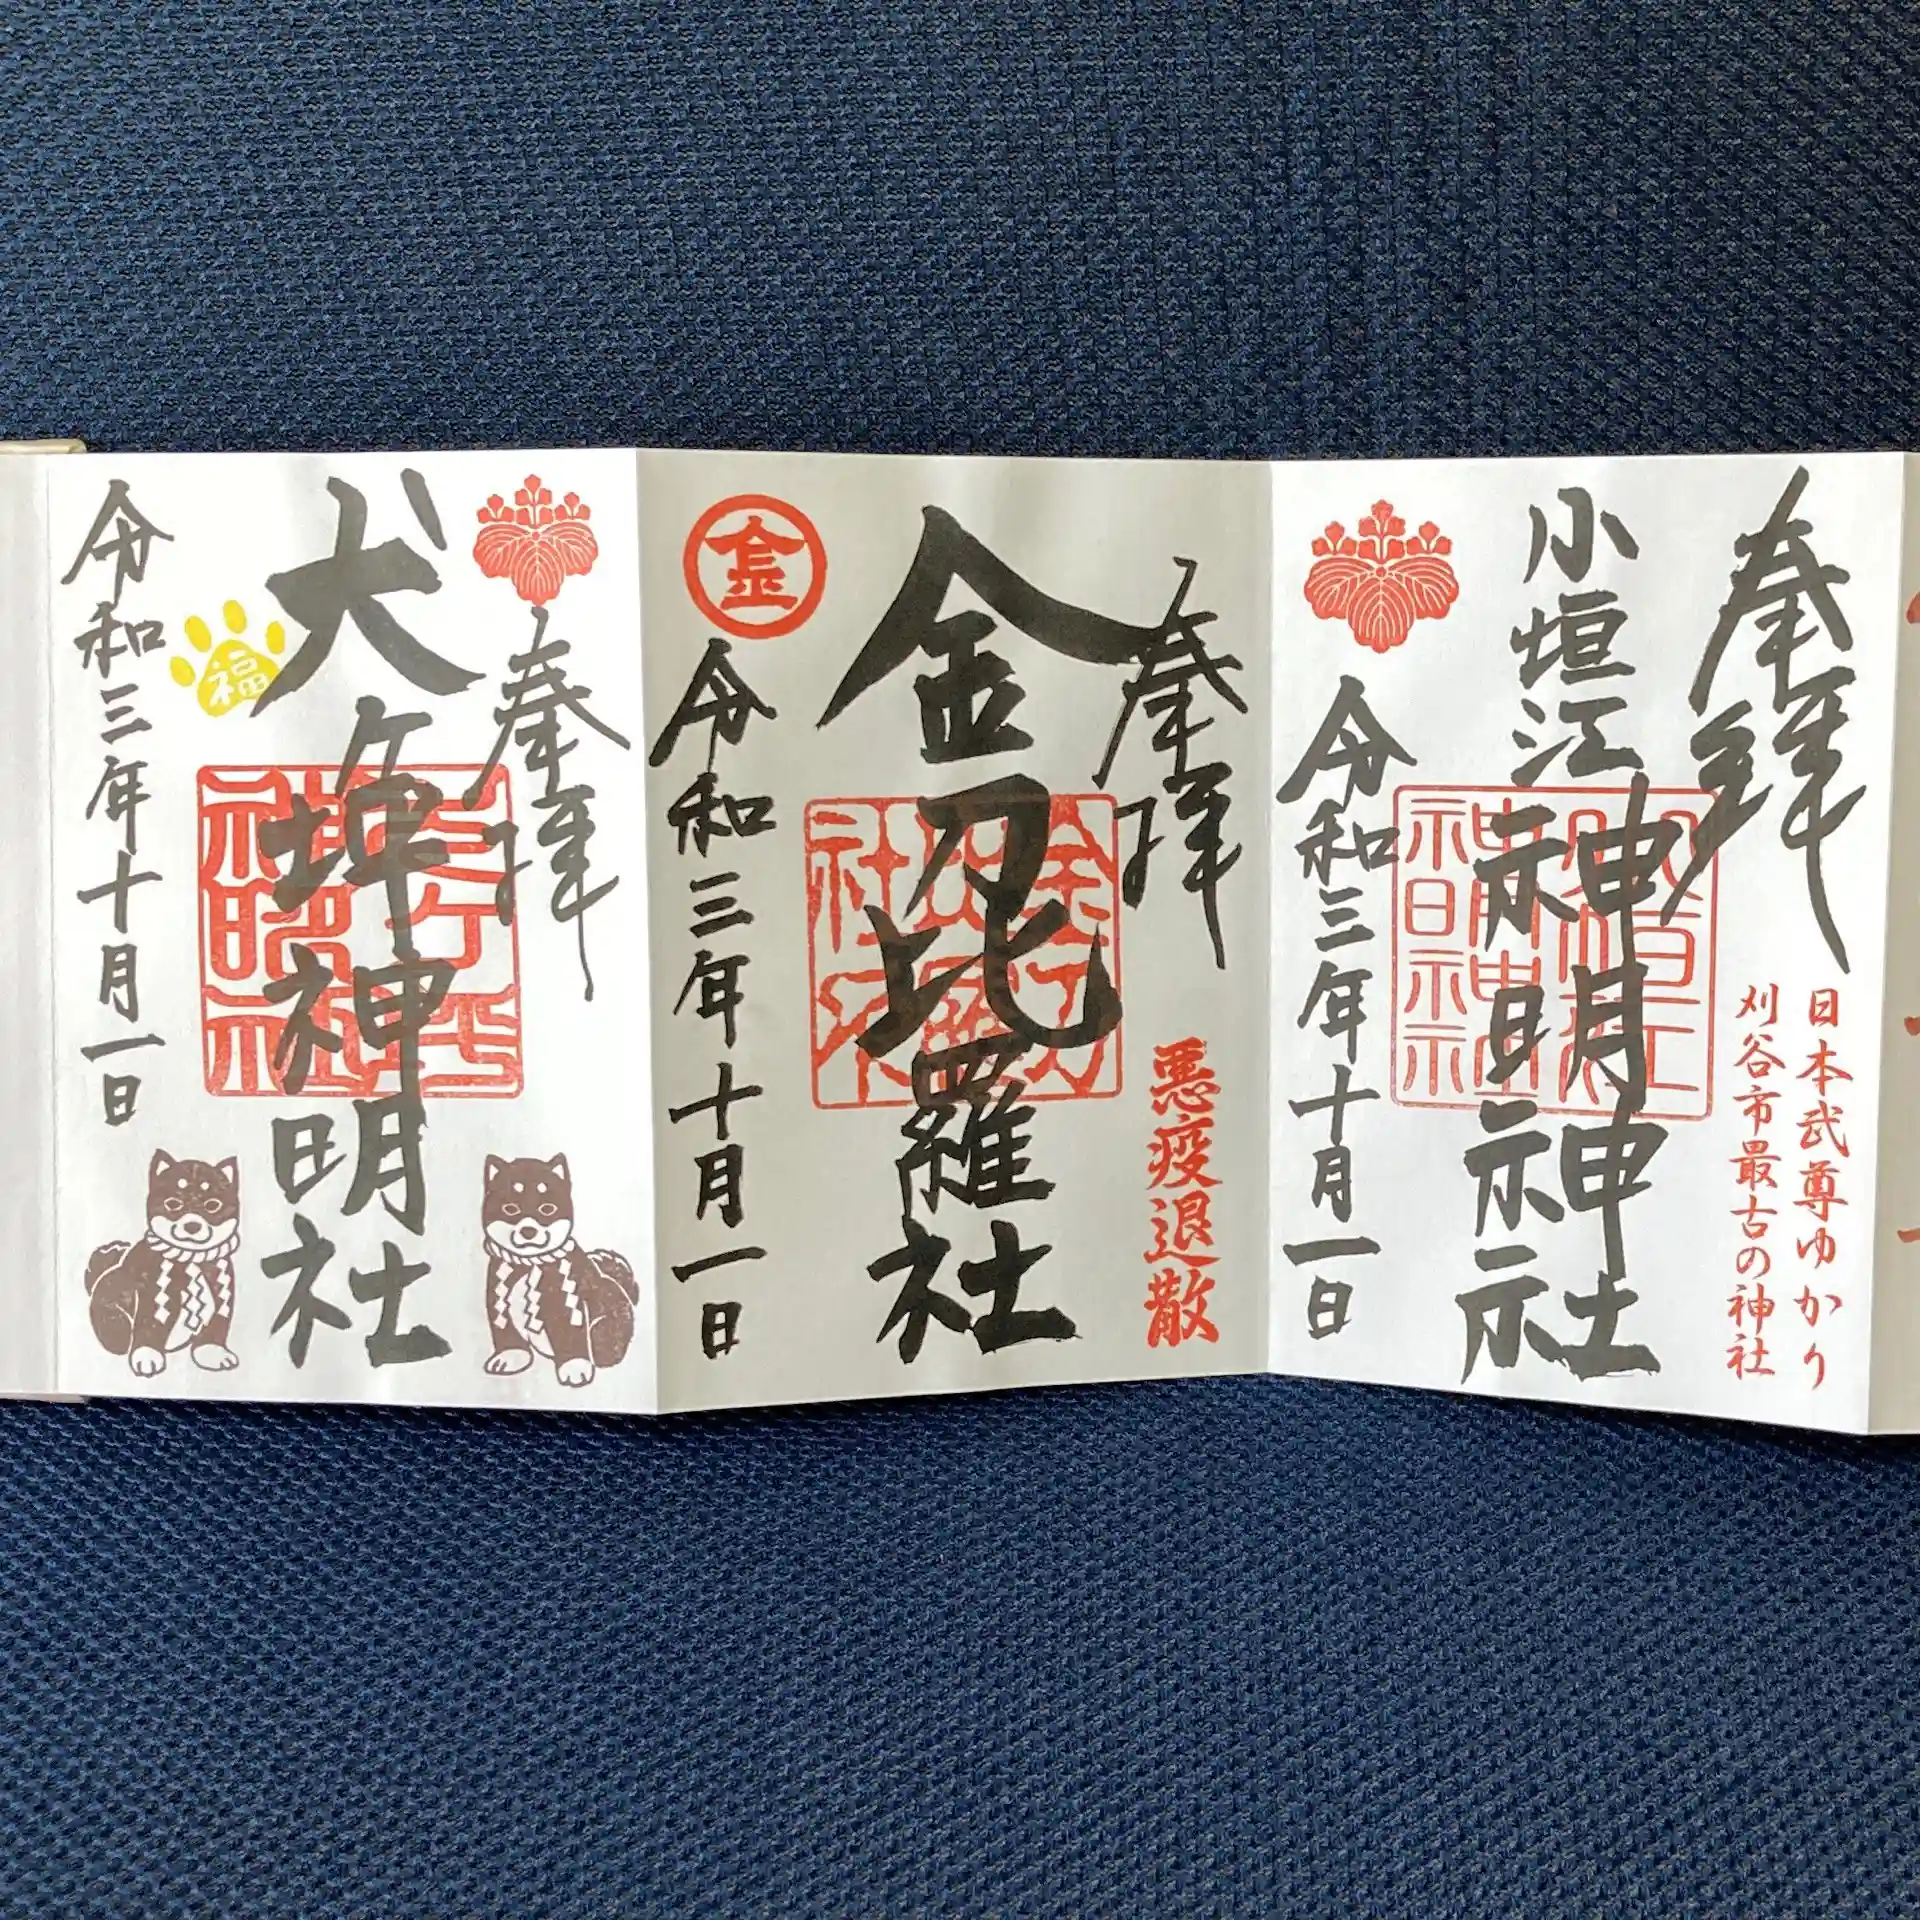 奉拝
小垣江神明神社
令和三年十月一日
日本武尊ゆかり
刈谷市最古の神社
奉拝
金刀比羅社
金
令和三年十月一日
悪疫退散
奉拝
犬ヶ坪神明社
福
令和三年十月一日